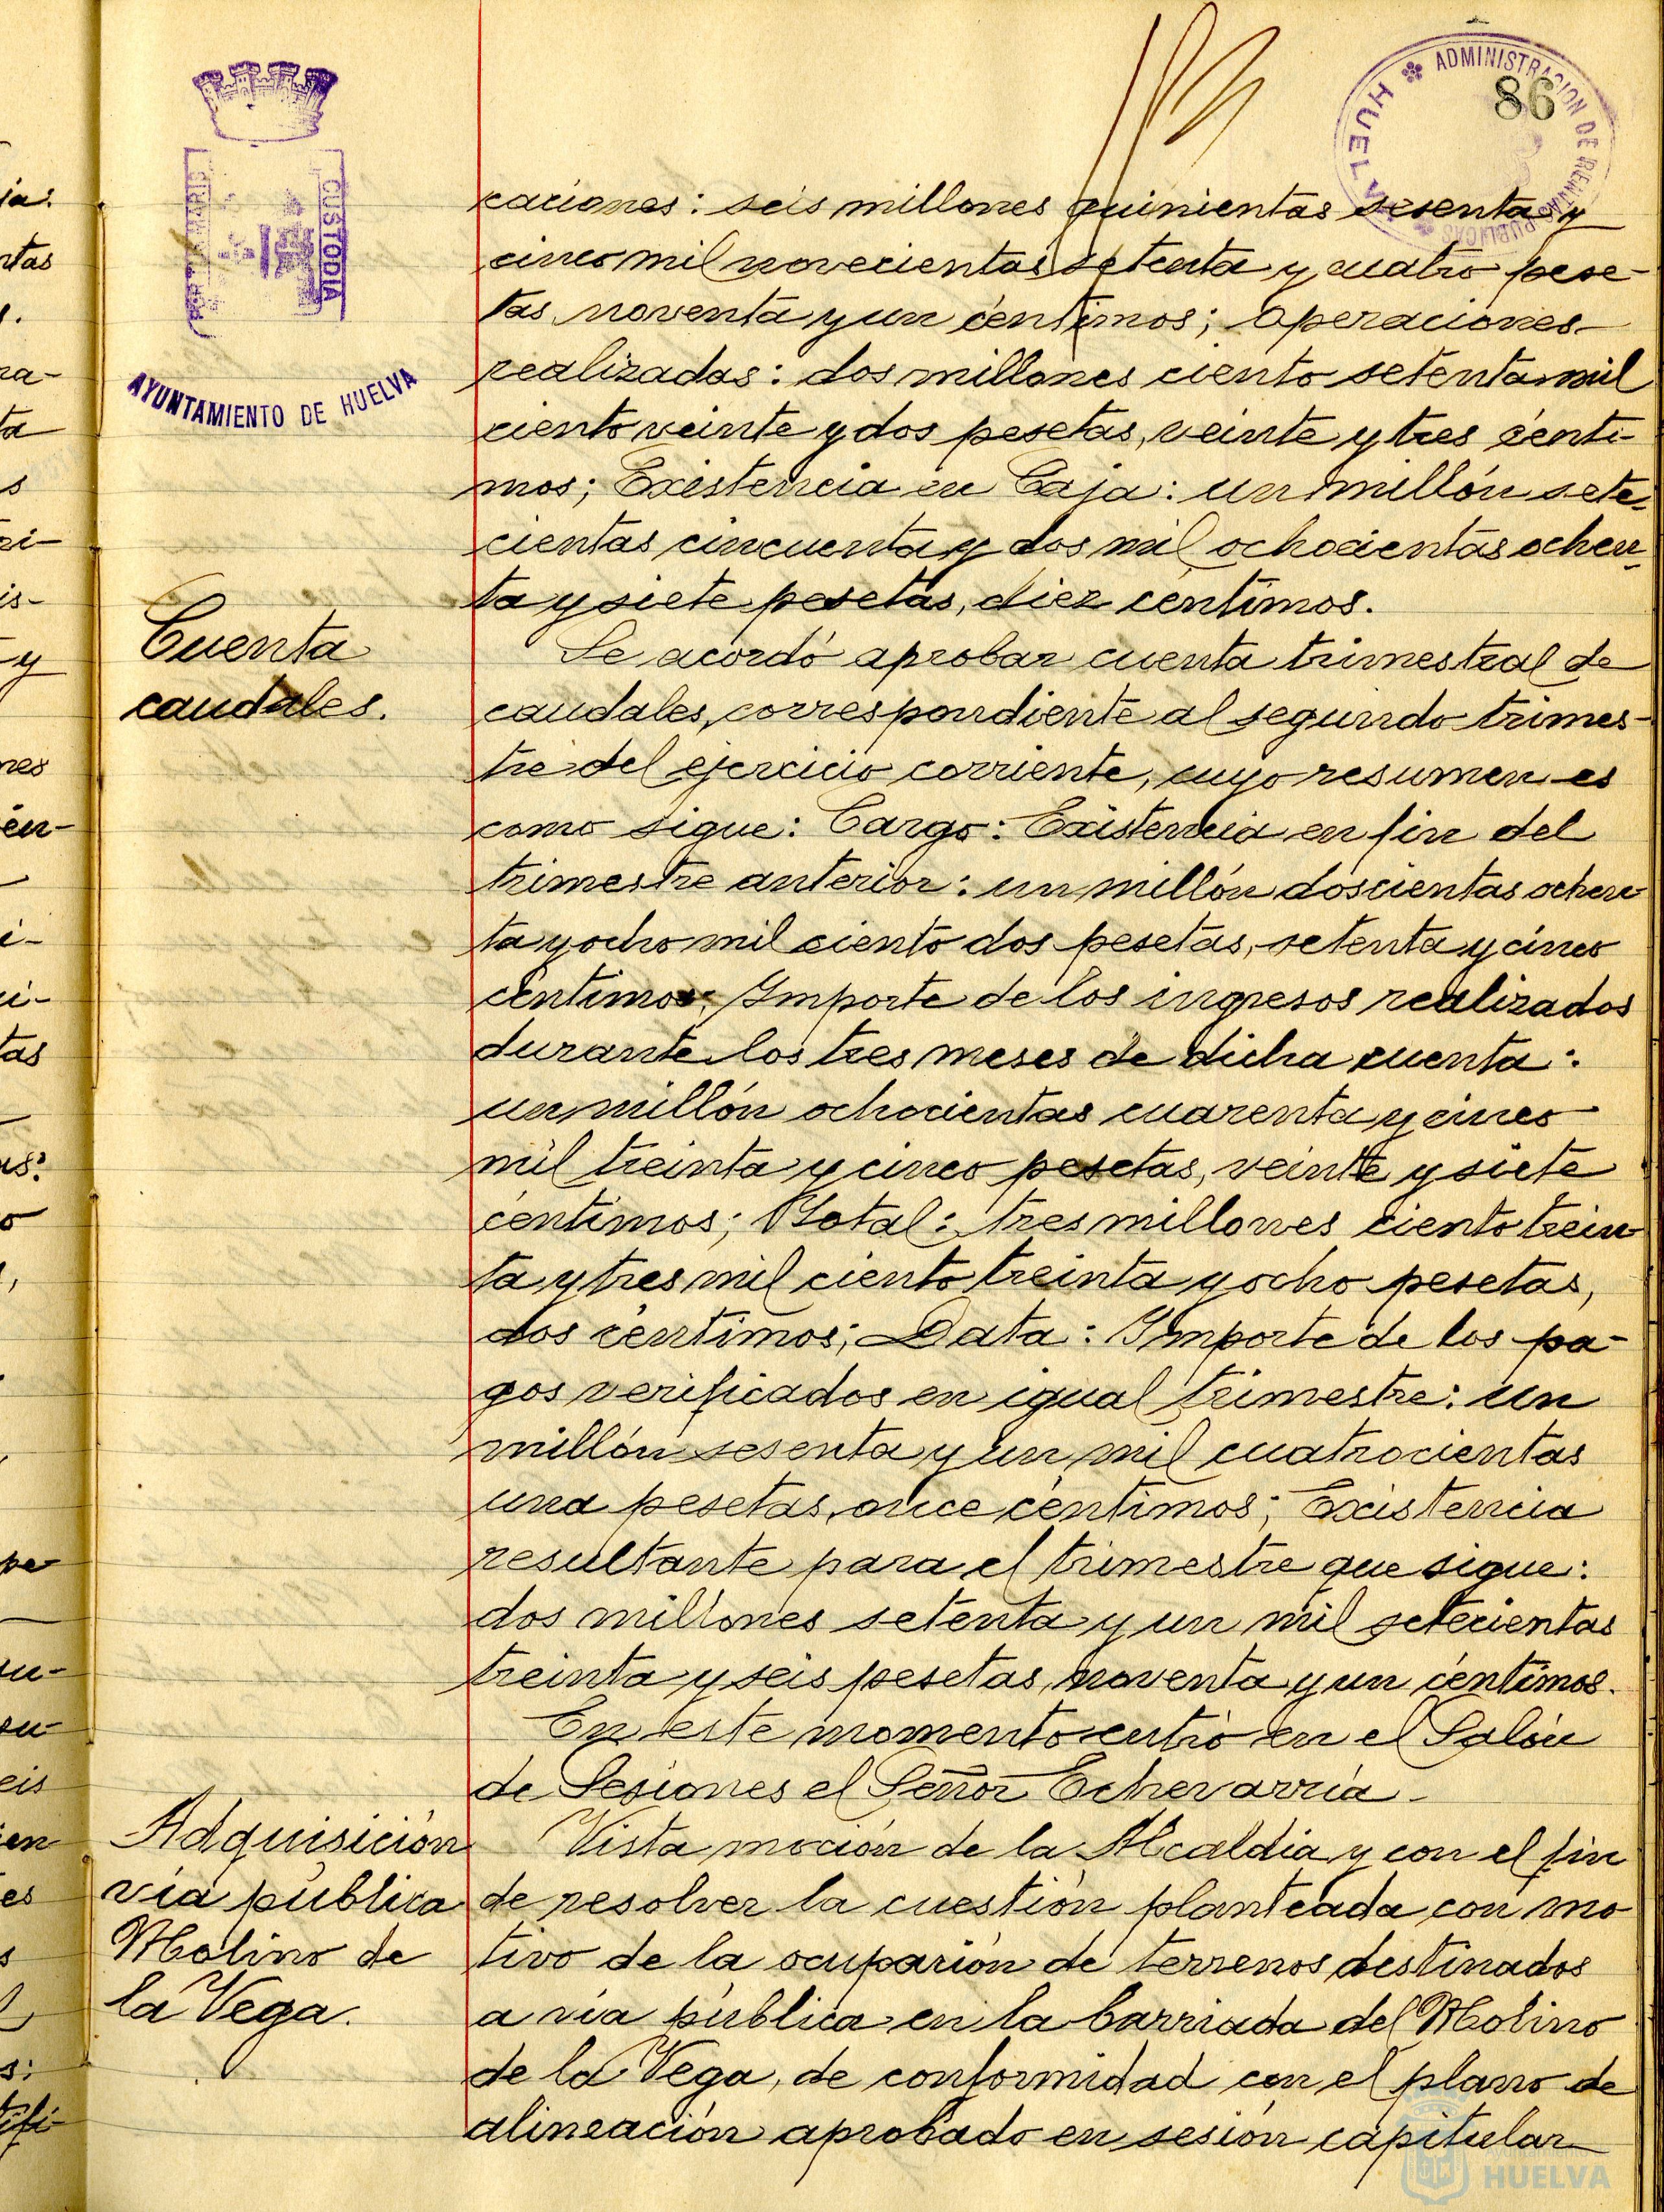 ADMINISTRACION DE RENTAS PUBLICAS
HUELVA
86
CUSTODIA
AYUNTAMIENTO DE HUELVA
caciones: seis millones quinientas sesenta y
cinco mil novecientas setenta y cuatro pese-
tas, noventa y un céntimos; Operaciones
realizadas: dos millones ciento setenta mil
ciento veinte y dos pesetas, veinte y tres cénti-
mos; Existencia en Caja: un millón sete-
cientas cincuenta y dos mil ochocientas ochen-
ta y siete pesetas, diez céntimos.
Cuenta
caudales.
Se acordó aprobar cuenta trimestral de
caudales, correspondiente al segundo trimes-
tre del ejercicio corriente, cuyo resumen es
como sigue: Cargo: Existencia en fin del
trimestre anterior: un millón doscientas ochen
ta y ocho mil ciento dos pesetas, setenta y cinco
céntimos; Importe de los ingresos realizados
durante los tres meses de dicha cuenta:
un millón ochocientas cuarenta y cinco
mil treinta y cinco pesetas, veinte y siete
céntimos; Total: tres millones ciento trein
ta y tres mil ciento treinta y ocho pesetas,
dos céntimos; Data: Importe de los pa-
gos verificados en igual trimestre: un
millón sesenta y un mil cuatrocientas
una pesetas, once céntimos; Existencia
resultante para el trimestre que sigue:
dos millones setenta y un mil setecientas
treinta y seis pesetas, noventa y un céntimos.
En este momento entró en el Salón
de Sesiones el Señor Echevarría.
Adquisición
vía pública
Molino de
la Vega.
Vista moción de la Alcaldía y con el fin
de resolver la cuestión planteada con mo
tivo de la ocupación de terrenos destinados
a vía pública en la barriada del Molino
de la Vega, de conformidad con el plano de
alineación aprobado en sesión capitular
HUELVA